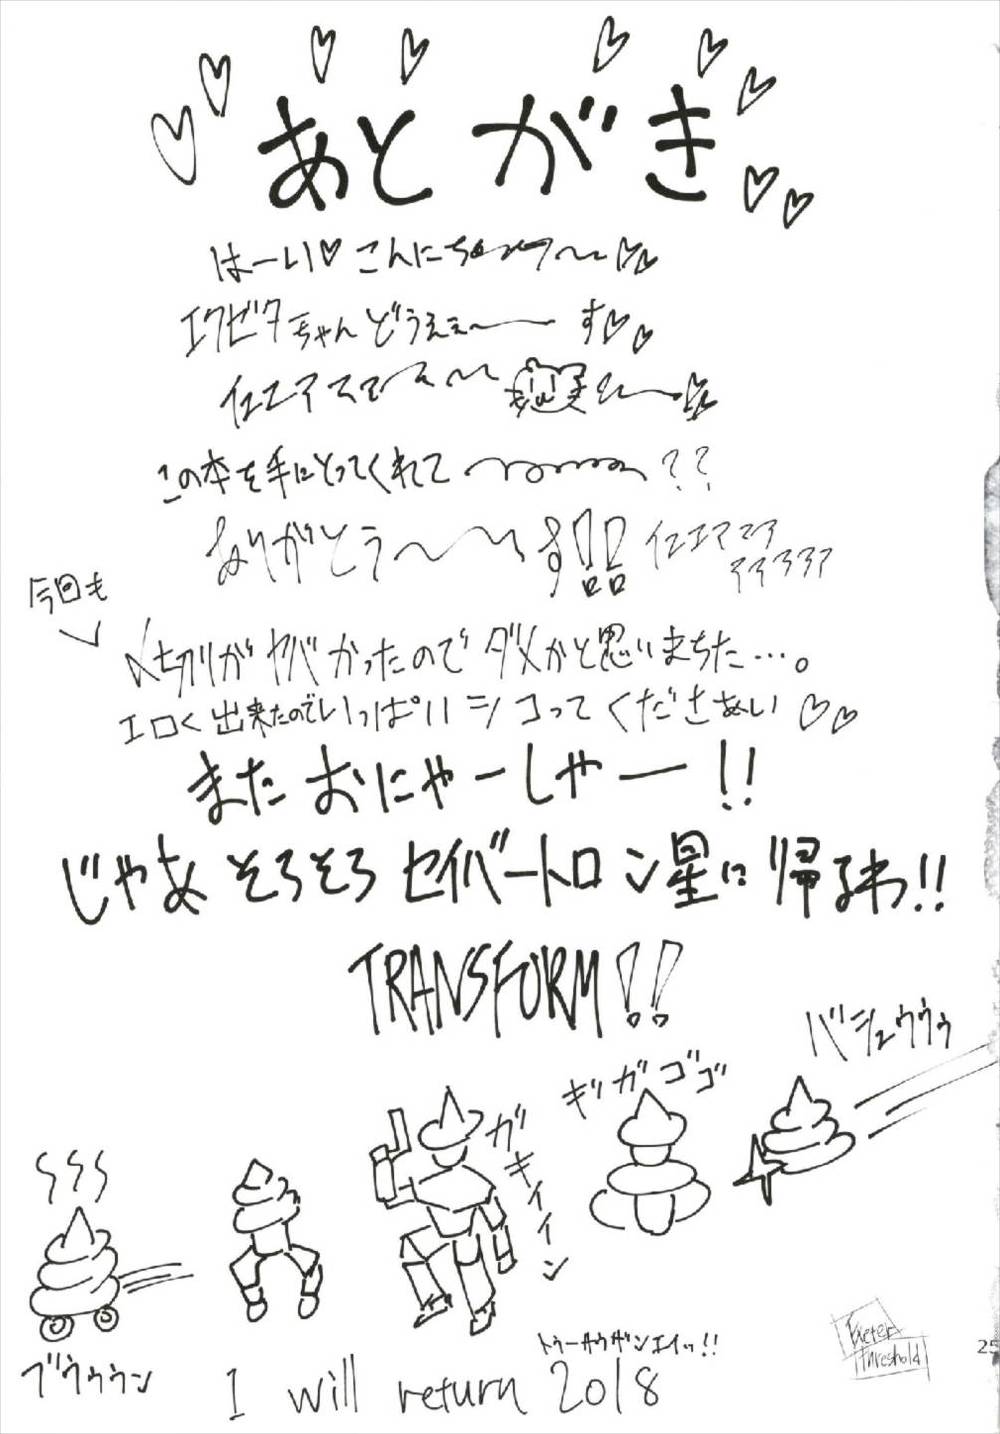 あとがき
はーい♡ こんにち
エクゼタちゃんどうぇぇ〜 す♡♡
イェエア
この本を手にとってくれて ??
ありがとう〜〜す!!
イェエアアア
アアアアア
今回も
〆切りがヤバかったのでダメかと思いまちた…。
エロく出来たのでいっぱいシコってくださぁい♡♡
またおにゃーしゃー!!
じゃあそろそろセイバートロン星に帰るわ!!
TRANSFORM!!
バシュウゥゥ
ギガゴゴ
ガキイイイン
ブウゥゥン
トゥーサウザンエイッ!!
I will return 2018
Exeter
threshold
25